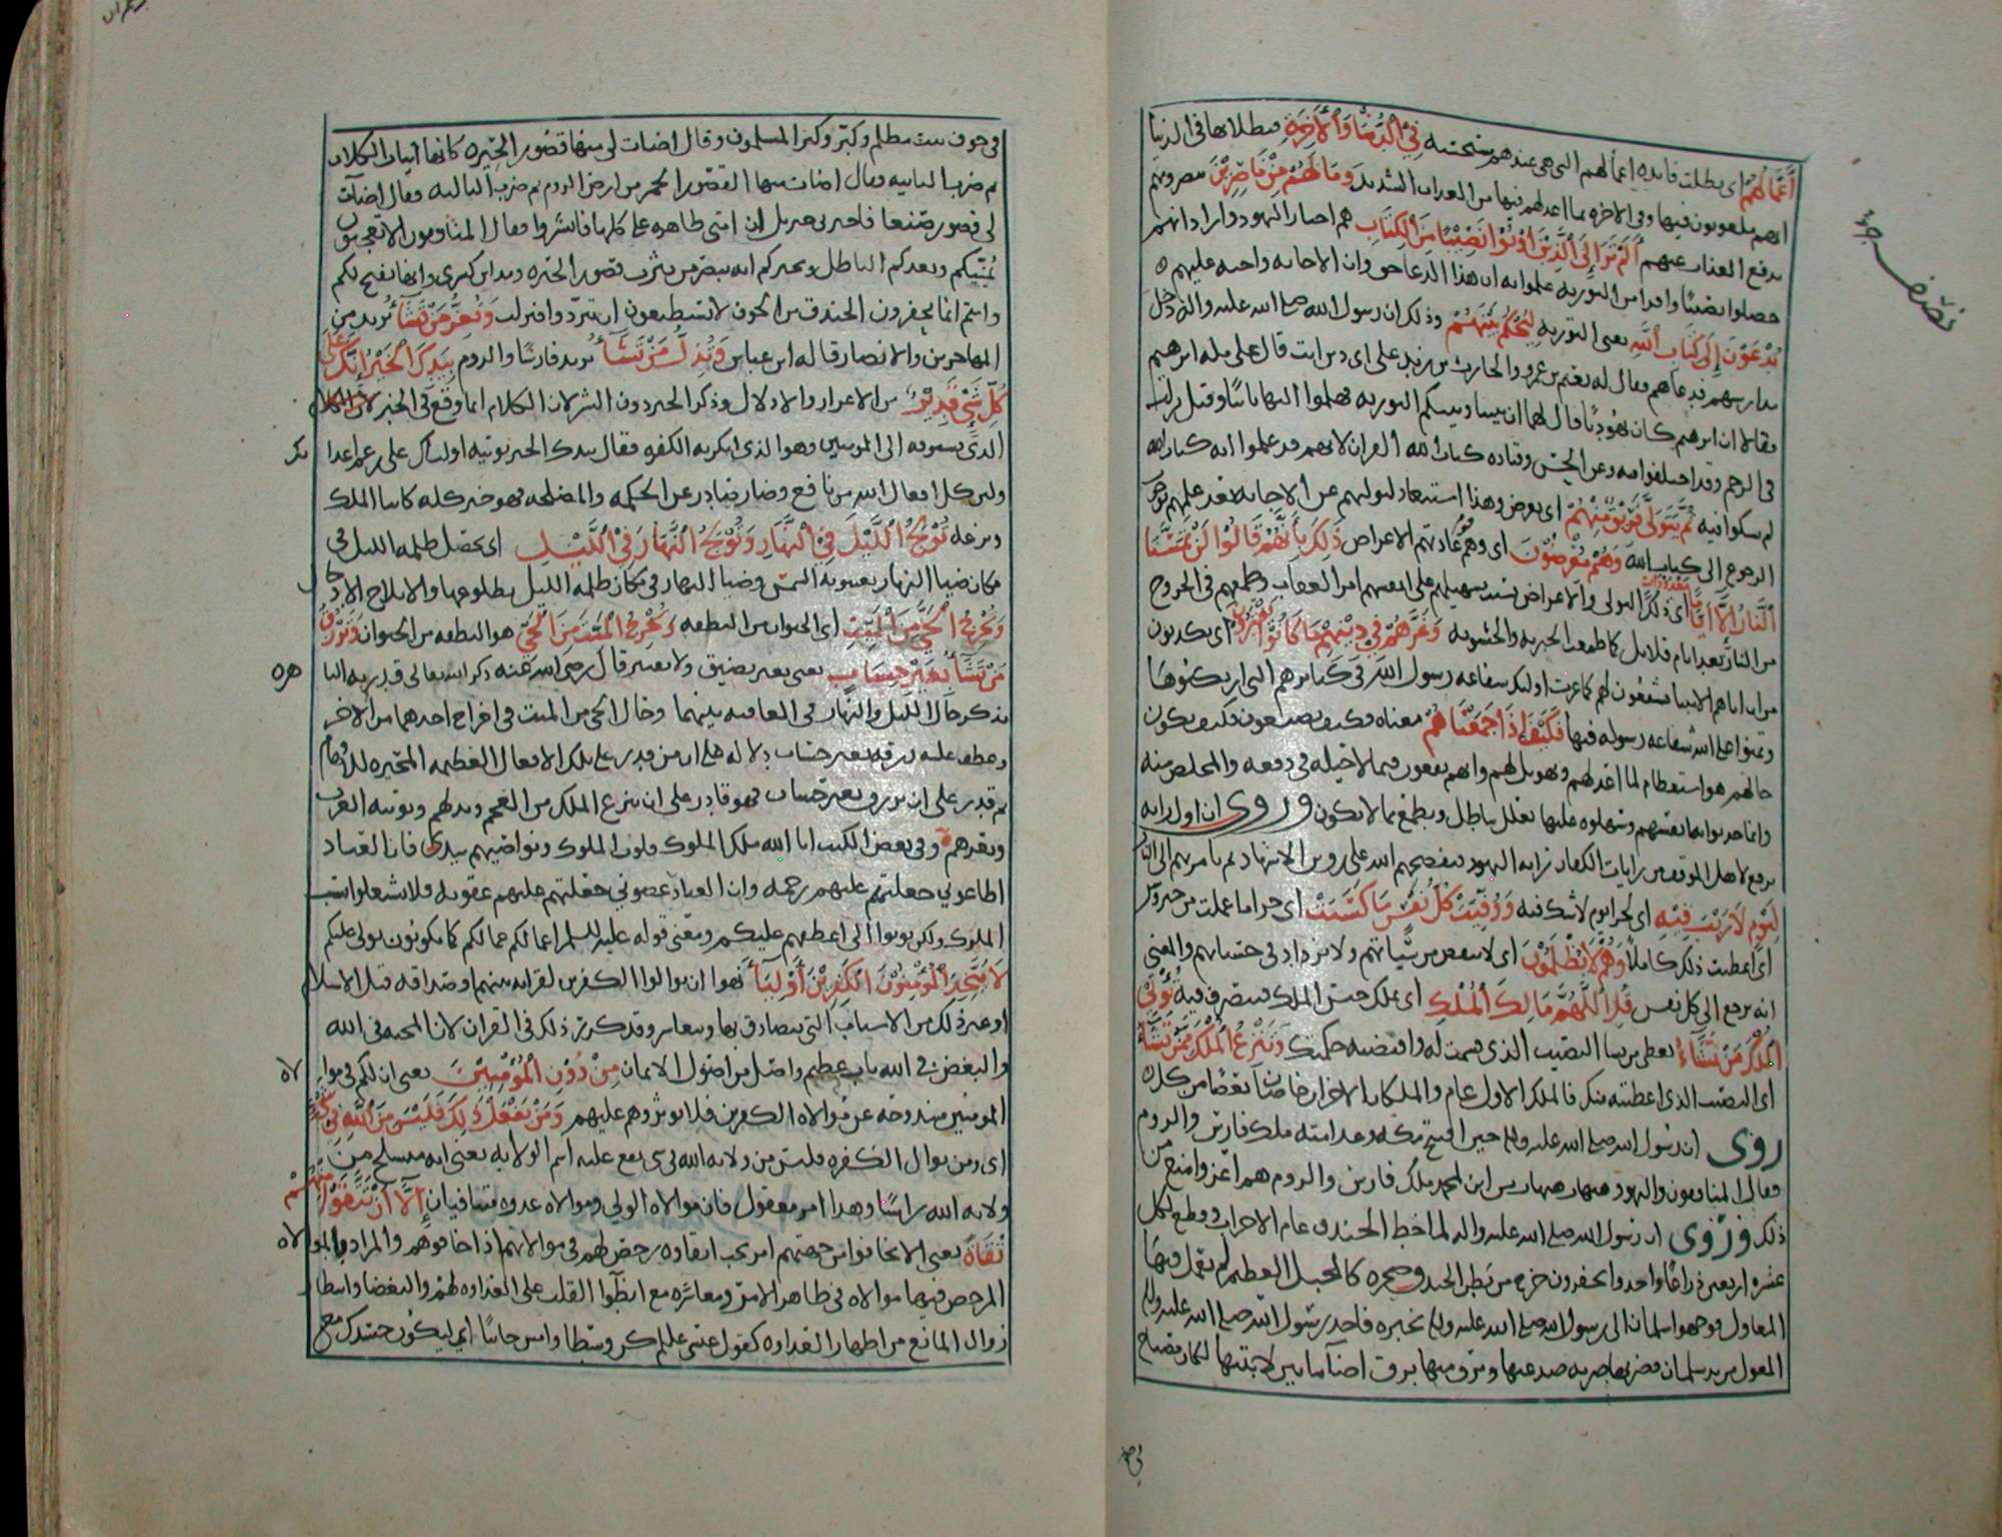 أعمالهم اى بطلت فايده اعمالهم التى هى عندهم مستحسنه في الدنيا والآخرة فبطلانها فى الدنيا
انهم ملعونون فيها وفى الاخره بما اعد لهم فيها من العداب الشديد وما لهم من ناصرين ينصرونهم
بدفع العذاب عنهم ألم تر إلى الذين أوتوا نصيبا من الكتاب هم احبار اليهود واراد انهم
حصلوا نصيبا وافرا من التوريه علموا به ان هذا الدعا حق وان الاجابه واجبه عليهم
يدعون إلى كتاب الله يعنى التوريه ليحكم بينهم وذلك ان رسول الله صلى الله عليه واله دخل
مدارسهم فدعاهم فقال له نعيم بن عمرو والحارث بن زيد على اى دين انت قال على مله ابرهيم
فقالا ان ابرهيم كان يهوديا قال لهما ان بيننا وبينكم التوريه فهلموا اليها فابيا وقيل نزلت
فى الرجم وقد اختلفوا فيه وعن الحسن وقتاده كتاب الله القران لانهم قد علموا انه كتاب الله
لم يشكوا فيه ثم يتولى فريق منهم اى يعرض وهذا استبعاد لتوليهم عن الاجابه بعد علمهم بوجوب
الرجوع الى كتاب الله وهم معرضون اى وهم قوم عادتهم الاعراض ذلك بأنهم قالوا لن تمسنا
النار إلا أياما معدودات اى ذلك التولى والاعراض بسبب تسهيلهم على انفسهم امر العقاب وطمعهم فى الخروج
من النار بعد ايام قلايل كما طمعت الجبريه والحشويه وغرهم في دينهم ما كانوا يفترون اى يكذبون
من ان اباهم الانبيا يشفعون لهم كما غرت اوليك شفاعه رسول الله فى كبايرهم التى ارتكبوها
وتمنوا على الله شفاعه رسوله فيها فكيف إذا جمعناهم معناه فكيف يصنعون فكيف يكون
حالهم هو استعظام لما اعد لهم وتهويل لهم وانهم يقعون فيما لا حيله فى دفعه والمخلص منه
وانما حدثوا به انفسهم وسهلوه عليها تعلل بباطل وتطمع بما لا يكون وروى ان اول رايه
ترفع لاهل الموقف من رايات الكفار رايه اليهود فيفضحهم الله على رؤس الاشهاد ثم يامر بهم الى النار
ليوم لا ريب فيه اى لجزا يوم لا شك فيه ووفيت كل نفس ما كسبت اى جزا ما عملت من خير وشر
اى اعطيت ذلك كاملا وهم لا يظلمون اى لا ينقص من سياتهم ولا يزداد فى حسناتهم والمعنى
انه يرجع الى كل نفس قل اللهم مالك الملك اى تملك جنس الملك فتتصرف فيه تؤتي
الملك من تشاء تعطى من تشا النصيب الذى قسمت له واقتضته حكمتك وتنزع الملك ممن تشاء
اى النصيب الذى اعطيته منك فالملك الاول عام والملكان الاخران خاصان بعضا من كله
روى ان رسول الله صلى الله عليه واله حين افتتح مكه وعد امته ملك فارس والروم
فقال المنافقون واليهود هيهات هيهات من اين لمحمد ملك فارس والروم هم اعز وامنع من
ذلك وروى ان رسول الله صلى الله عليه واله لما خط الخندق عام الاحزاب وقطع لكل
عشره اربعين ذراعا واخذوا يحفرون خرج من بطن الخندق صخره كالجبل العظيم لم يعمل فيها
المعاول فوجهوا سلمان الى رسول الله صلى الله عليه واله يخبره فاخذ رسول الله صلى الله عليه واله
المعول من يد سلمان فضربها ضربه صدعتها وبرق منها برق اضا ما بين لابتيها لكان مصباح
فى جوف بيت مظلم وكبر وكبر المسلمون وقال اضات لى منها قصور الحيره كانها انياب الكلاب
ثم ضرب الثانيه فقال اضات منها القصور الحمر من ارض الروم ثم ضرب الثالثه فقال اضات
لى قصور صنعا فاخبرنى جبريل ان امتى ظاهره على كلها فابشروا فقال المنافقون الا تعجبون
يمنيكم ويعدكم الباطل ويخبركم انه يبصر من يثرب قصور الحيره ومداين كسرى وانها تفتح لكم
وانتم انما تحفرون الخندق من الخوف لا تستطيعون ان تبرزوا فنزلت وتعز من تشاء تريد من
المهاجرين والانصار قاله ابن عباس وتذل من تشاء تريد فارسا والروم بيدك الخير إنك على
كل شيء قدير من الاعزاز والاذلال وذكر الخير دون الشر لان الكلام انما وقع فى الخير
الذى يسوقه الى المومنين وهو الذى انكرته الكفره فقال بيدك الخير توتيه اوليآك على رغم اعدا
ئك
ولان كل افعال الله من نافع وضار صادر عن الحكمه والمصلحه فهو خير كله كايتا الملك
ونزعه تولج الليل في النهار وتولج النهار في الليل اى تجعل ظلمه الليل فى
مكان ضيا النهار بغيبوبه الشمس وضيا النهار فى مكان ظلمه الليل بطلوعها والايلاج الادخال
وتخرج الحي من الميت اى الحيوان من النطفه وتخرج الميت من الحي هو النطفه من الحيوان وترزق
من تشاء بغير حساب يعنى بغير تضييق ولا تعسير قال رضى الله عنه ذكر الله تعالى قدرته البا
هره
بذكر حال الليل والنهار فى المعاقبه بينهما وحال الحى من الميت فى اخراج احدهما من الاخر
وعطف عليه رزقه بغير حساب دلاله على ان من قدر على تلك الافعال العظيمه المحيره للافهام
ثم قدر على ان يرزق بغير حساب فهو قادر على ان ينزع الملك من العجم ويذلهم ويوتيه العرب
ويعزهم وفى بعض الكتب انا الله ملك الملوك قلوب الملوك ونواصيهم بيدى فان العباد
اطاعونى جعلتهم عليهم رحمه وان العباد عصونى جعلتهم عليهم عقوبه فلا تشتغلوا بسب
الملوك ولكن توبوا الى اعطفهم عليكم ومعنى قوله عليه السلم اعمالكم عمالكم كما تكونون يولى عليكم
لا يتخذ المؤمنون الكفرين أولياء نهوا ان يوالوا الكفرين لقرابه بينهم او صداقه قبل الاسلام
او غير ذلك من الاسباب التى يتصادق بها ويتعاشر وقد كرر ذلك فى القران لان المحبه فى الله
والبغض فى الله باب عظيم واصل من اصول الايمان من دون المؤمنين يعنى ان لكم فى موا
لاه
المومنين مندوحه عن موالاه الكفرين فلا توثروهم عليهم ومن يفعل ذلك فليس من الله في شيء
اى ومن يوال الكفره فليس من ولايه الله فى شى يقع عليه اسم الولايه يعنى انه منسلخ من
ولايه الله راسا وهذا امر معقول فان موالاه الولى وموالاه عدوه متنافيان إلا أن تتقوا منهم
تقاة يعنى الا ان تخافوا من جهتهم امر يجب اتقاوه رخص لهم فى موالاتهم اذا خافوهم والمراد بالموالاه
المرخص فيها موالاه فى ظاهر الامر ومعاشره مع ابطان القلب على العداوه لهم والبغضا وانتظار
زوال المانع من اظهار العداوه كقول عيسى عليلم كن وسطا وامش جانبا اى ليكون جسدك مع